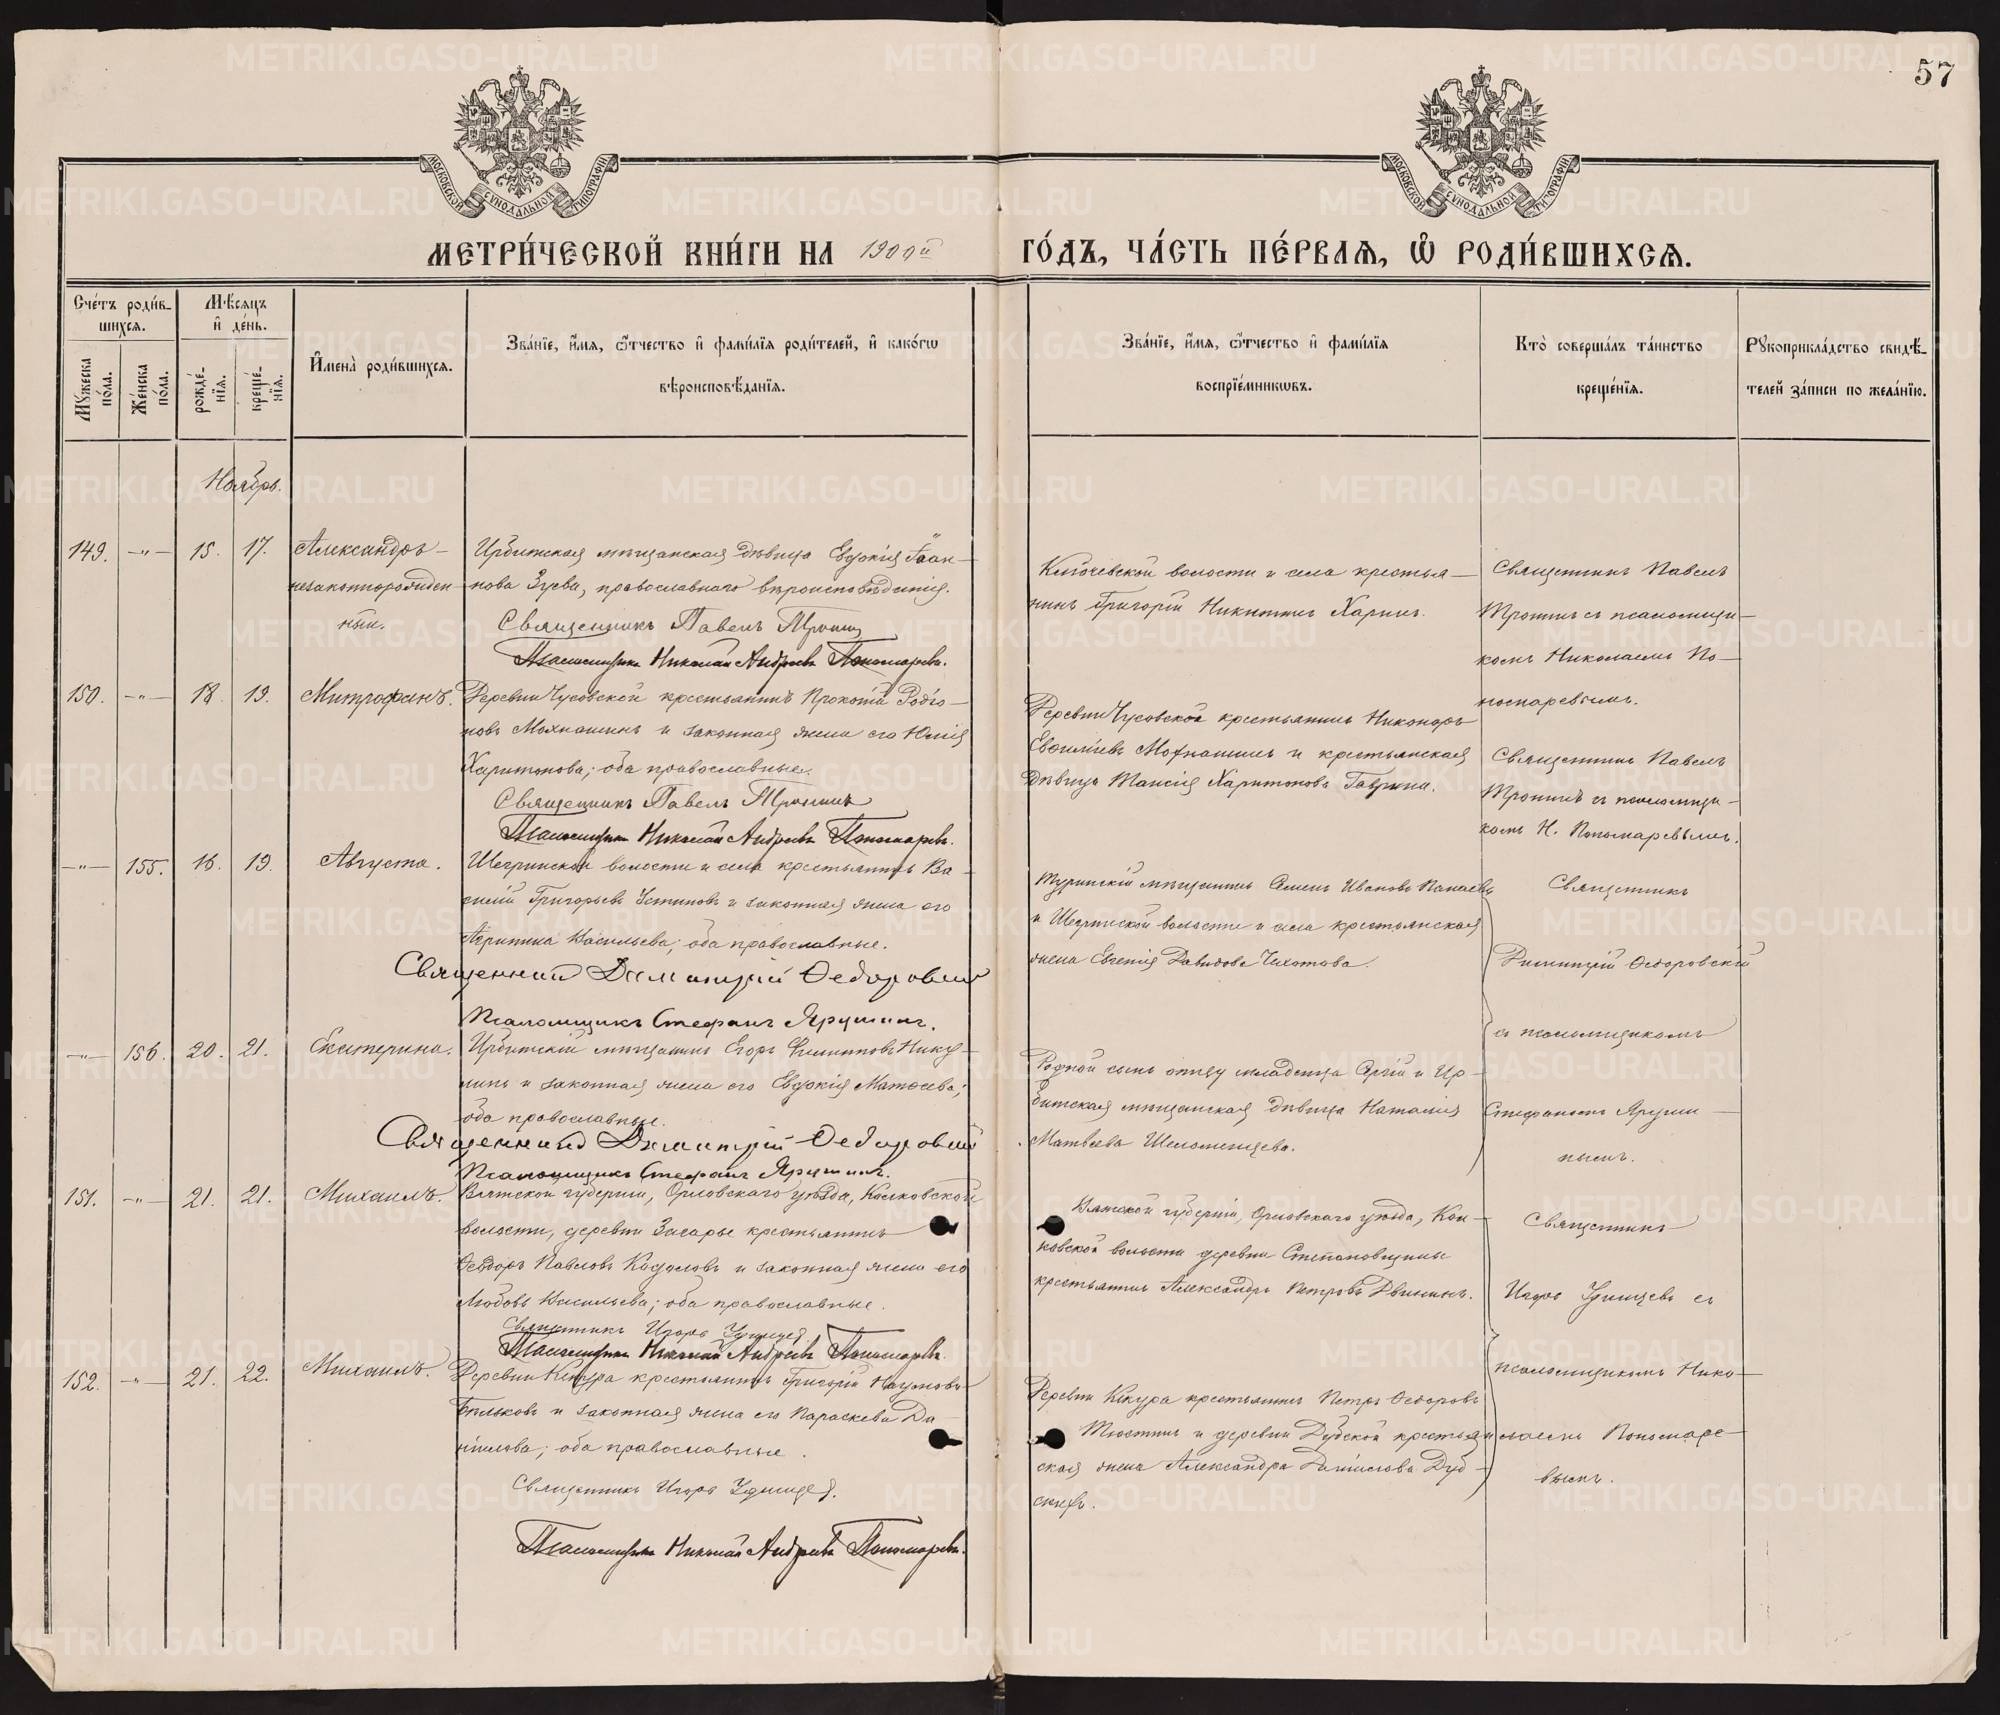 57
МОСКОВСКОЙ СУНОДАЛЬНОЙ ТИПОГРАФІИ
МОСКОВСКОЙ СУНОДАЛЬНОЙ ТИПОГРАФІИ
МЕТРИ́ЧЕСКОЙ КНИ́ГИ НА 1909й ГО́ДЪ, ЧА́СТЬ ПЕ́РВАѦ, Ѽ РОДИ́ВШИХСѦ.
Сче́тъ роди́в-
шихсѧ.
Мꙋжеска по́ла.
Же́нска по́ла.
Мѣ́сѧцъ
и҆ де́нь.
рожде́-
нїѧ.
креще́-
нїѧ.
И҆мена̀ роди́вшихсѧ.
Зва́нїе, и҆́мѧ, ѻ҆́тчество и҆ фами́лїѧ роди́телей, и҆ како́гѡ
вѣроисповѣ́данїѧ.
Зва́нїе, и҆́мѧ, ѻ҆́тчество и҆ фами́лїѧ
воспрїе́мникѡвъ.
Кто̀ соверша́лъ та́инство
креще́нїѧ.
Рꙋкоприкла́дство свидѣ́-
телей за́писи по жела́нїю.
Ноябрь.
149. —"— 15. 17. Александръ —
незаконнорожден-
ный.
Ирбитская мѣщанская дѣвица Евдокія Іоан-
нова Зуева, православнаго вѣроисповѣданія.
Священникъ Павелъ Тронинъ
Псаломщикъ Николай Андреевъ Пономаревъ.
Ключевской волости и села крестья-
нинъ Григорій Никитинъ Харинъ.
Священникъ Павелъ
Тронинъ съ псаломщи-
комъ Николаемъ По-
номаревымъ.
150. —"— 18. 19. Митрофанъ.
Деревни Чусовской крестьянинъ Прокопій Родіо-
новъ Мохнашинъ и законная жена его Юлія
Харитонова; оба православные.
Священникъ Павелъ Тронинъ
Псаломщикъ Николай Андреевъ Пономаревъ.
Деревни Чусовской крестьянинъ Никоноръ
Мохнашинъ и крестьянская
дѣвица Таисія Харитонова
Священникъ Павелъ
Тронинъ съ псаломщи-
комъ Н. Пономаревымъ.
—"— 155. 16. 19. Августа.
волости и села крестьянинъ Ва-
силій Григорьевъ Устиновъ и законная жена его
Агрипина Васильева; оба православные.
Священникъ Димитрій Ѳедоровскій
Псаломщикъ Стефанъ Ярушинъ.
Туринскій мѣщанинъ Семенъ Ивановъ
и волости и села крестьянская
жена Евгенія Давидова Чихотова.
Священникъ
Димитрій Ѳедоровскій
съ псаломщикомъ
Стефаномъ Яруши-
нымъ.
—"— 156. 20. 21. Екатерина.
Ирбитскій мѣщанинъ Егоръ Филипповъ Нику-
линъ и законная жена его Евдокія Матѳеева;
оба православные.
Священникъ Димитрій Ѳедоровскій
Псаломщикъ Стефанъ Ярушинъ.
Родной сынъ отцу младенца Сергій и Ир-
битская мѣщанская дѣвица Наталія
Матвѣева Шеломенцева.
151. —"— 21. 21. Михаилъ.
Вятской губерніи, Орловскаго уѣзда, Колковской
волости, деревни Загарье крестьянинъ
Ѳеодоръ Павловъ и законная жена его
Любовь Васильева; оба православные.
Священникъ Игорь
Псаломщикъ Николай Андреевъ Пономаревъ.
Вятской губерніи, Орловскаго уѣзда, Кол-
ковской волости деревни Степановщины
крестьянинъ Александръ Петровъ Двининъ.
Священникъ
Игорь съ
псаломщикомъ Нико-
лаемъ Пономаре-
вымъ.
152. —"— 21. 22. Михаилъ.
Деревни Кекура крестьянинъ Григорій Наумовъ
Бѣлковъ и законная жена его Параскева Да-
ніилова; оба православные.
Священникъ Игорь
Псаломщикъ Николай Андреевъ Пономаревъ.
Деревни Кекура крестьянинъ Петръ Ѳедоровъ
и деревни Дубской крестьян-
ская жена Александра Даніилова Дуб-
скихъ.
METRIKI.GASO-URAL.RU